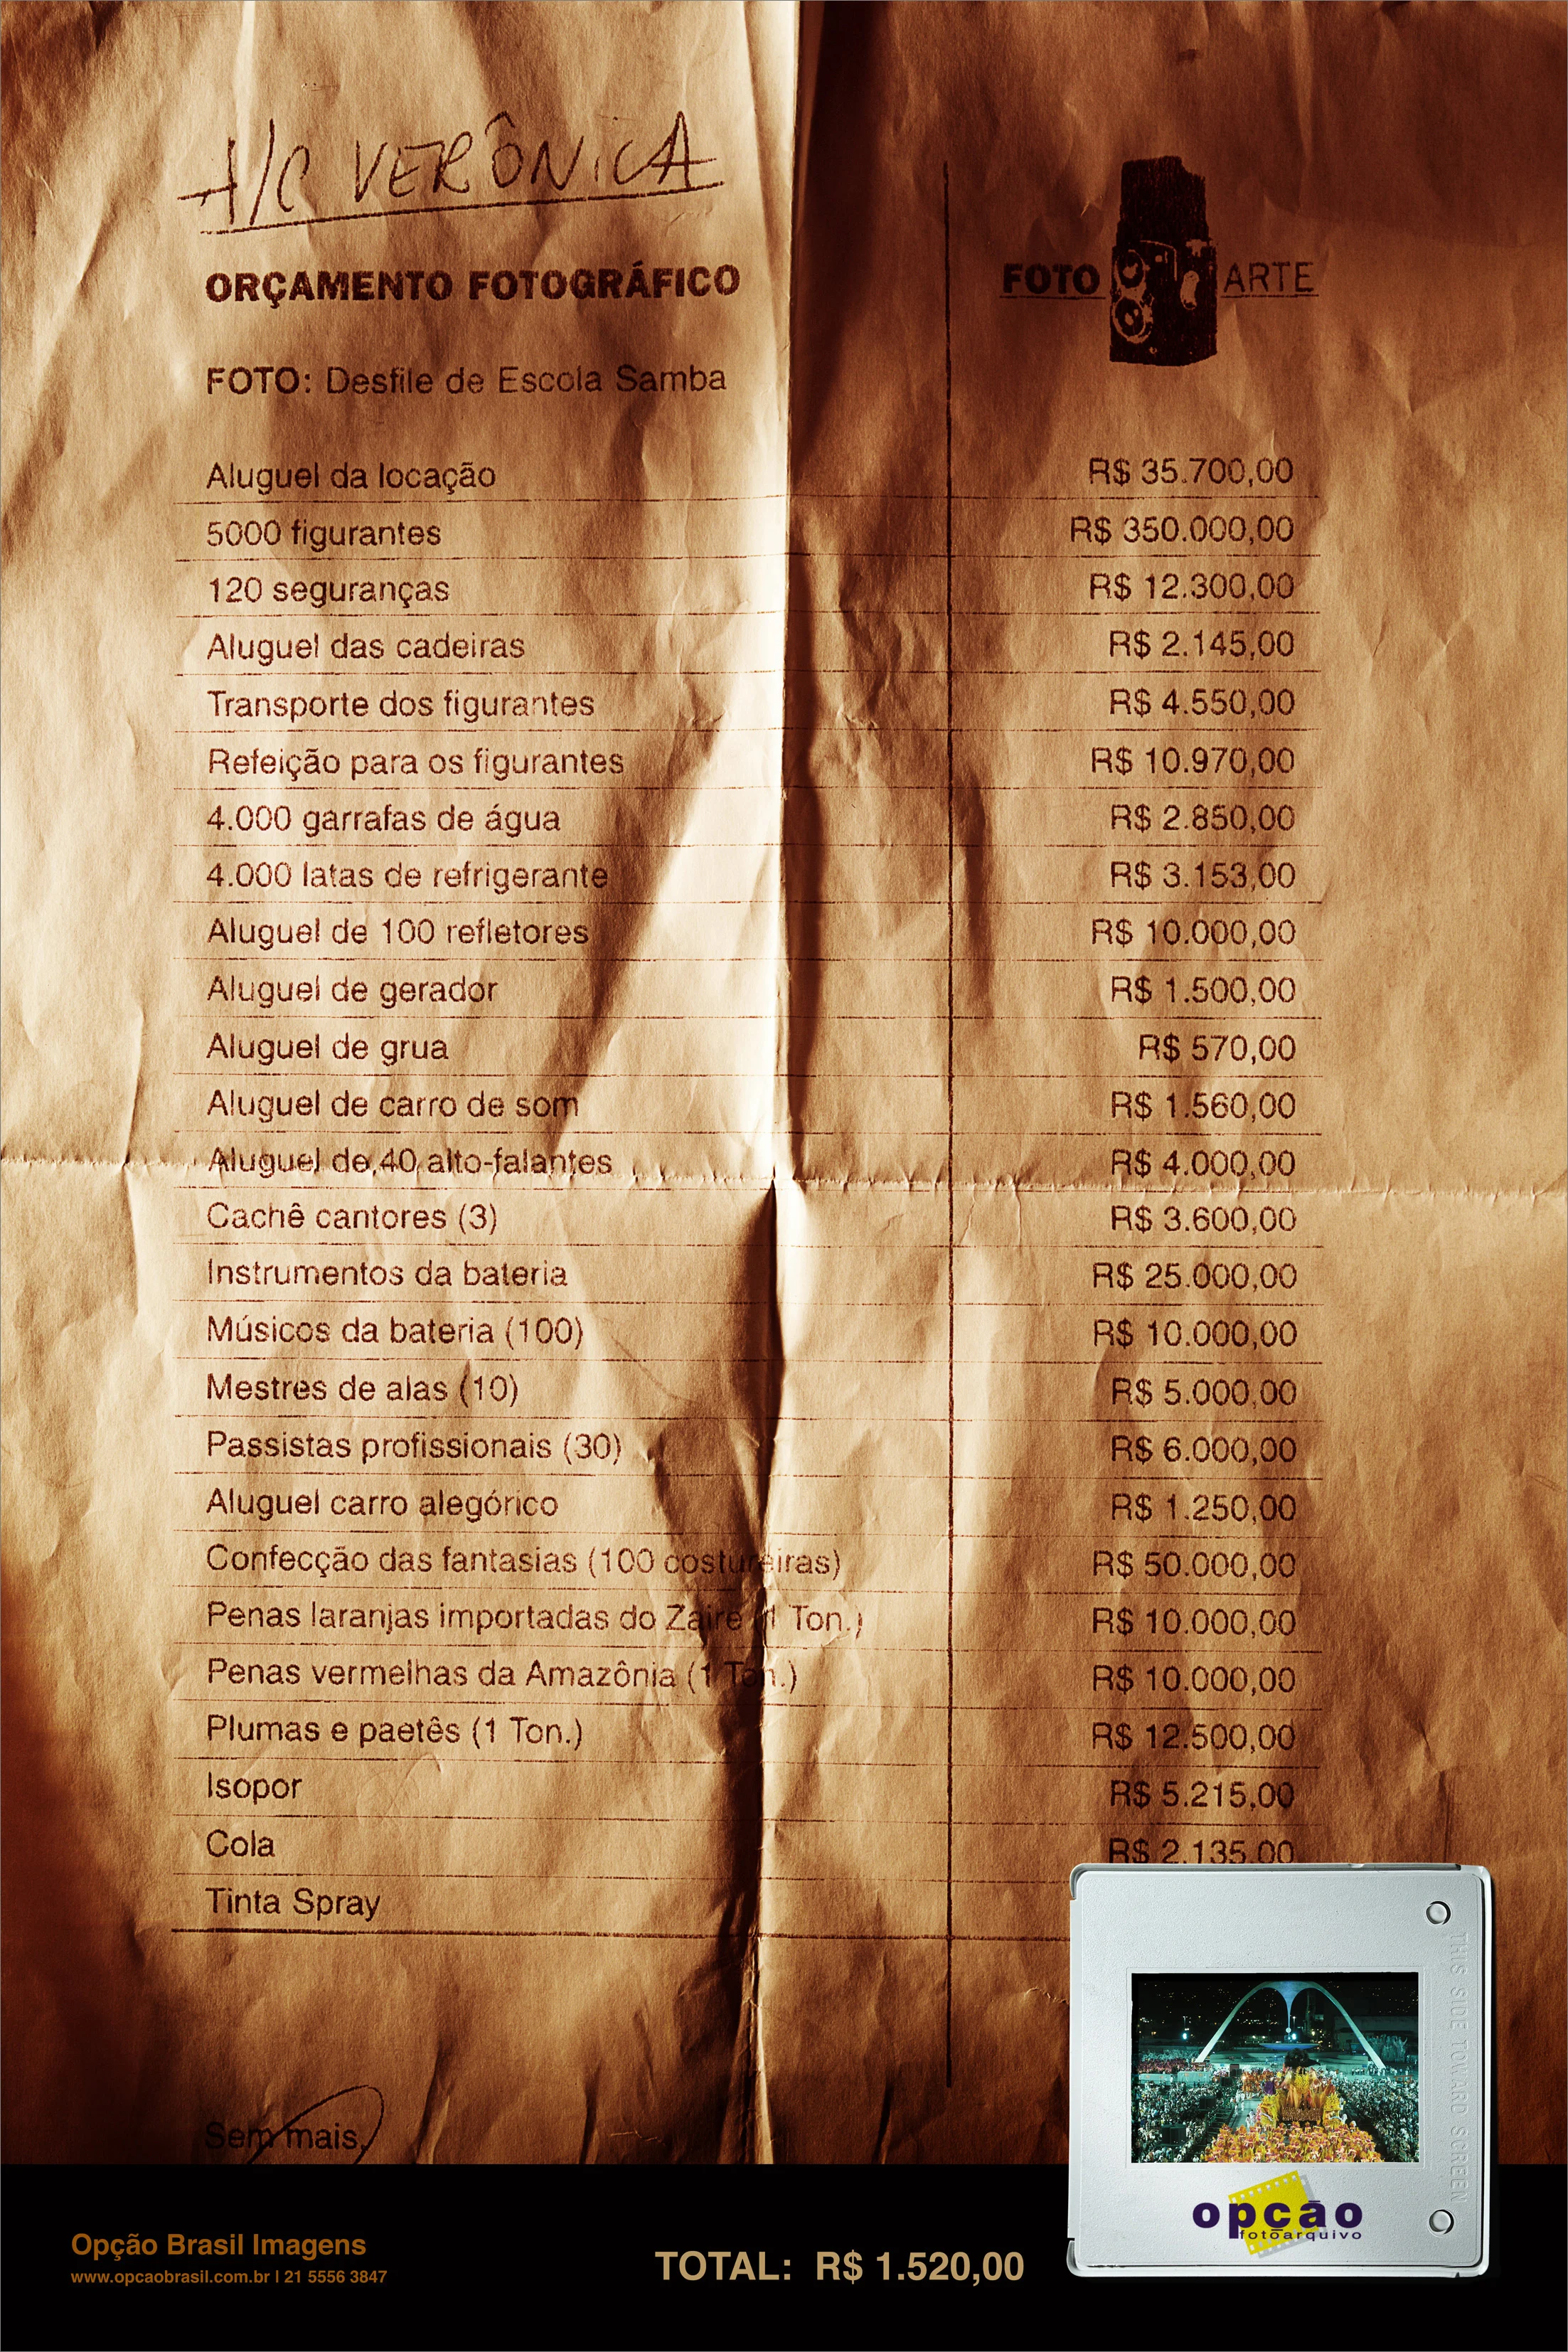 A/C VERÔNICA
ORÇAMENTO FOTOGRÁFICO
FOTO ARTE
FOTO: Desfile de Escola Samba
Aluguel da locação R$ 35.700,00
5000 figurantes R$ 350.000,00
120 seguranças R$ 12.300,00
Aluguel das cadeiras R$ 2.145,00
Transporte dos figurantes R$ 4.550,00
Refeição para os figurantes R$ 10.970,00
4.000 garrafas de água R$ 2.850,00
4.000 latas de refrigerante R$ 3.153,00
Aluguel de 100 refletores R$ 10.000,00
Aluguel de gerador R$ 1.500,00
Aluguel de grua R$ 570,00
Aluguel de carro de som R$ 1.560,00
Aluguel de 40 alto-falantes R$ 4.000,00
Cachê cantores (3) R$ 3.600,00
Instrumentos da bateria R$ 25.000,00
Músicos da bateria (100) R$ 10.000,00
Mestres de alas (10) R$ 5.000,00
Passistas profissionais (30) R$ 6.000,00
Aluguel carro alegórico R$ 1.250,00
Confecção das fantasias (100 costureiras) R$ 50.000,00
Penas laranjas importadas do Zaire (1 Ton.) R$ 10.000,00
Penas vermelhas da Amazônia (1 Ton.) R$ 10.000,00
Plumas e paetês (1 Ton.) R$ 12.500,00
Isopor R$ 5.215,00
Cola R$ 2.135,00
Tinta Spray
Sem mais,
THIS SIDE TOWARD SCREEN
opção
fotoarquivo
Opção Brasil Imagens
www.opcaobrasil.com.br | 21 5556 3847
TOTAL: R$ 1.520,00